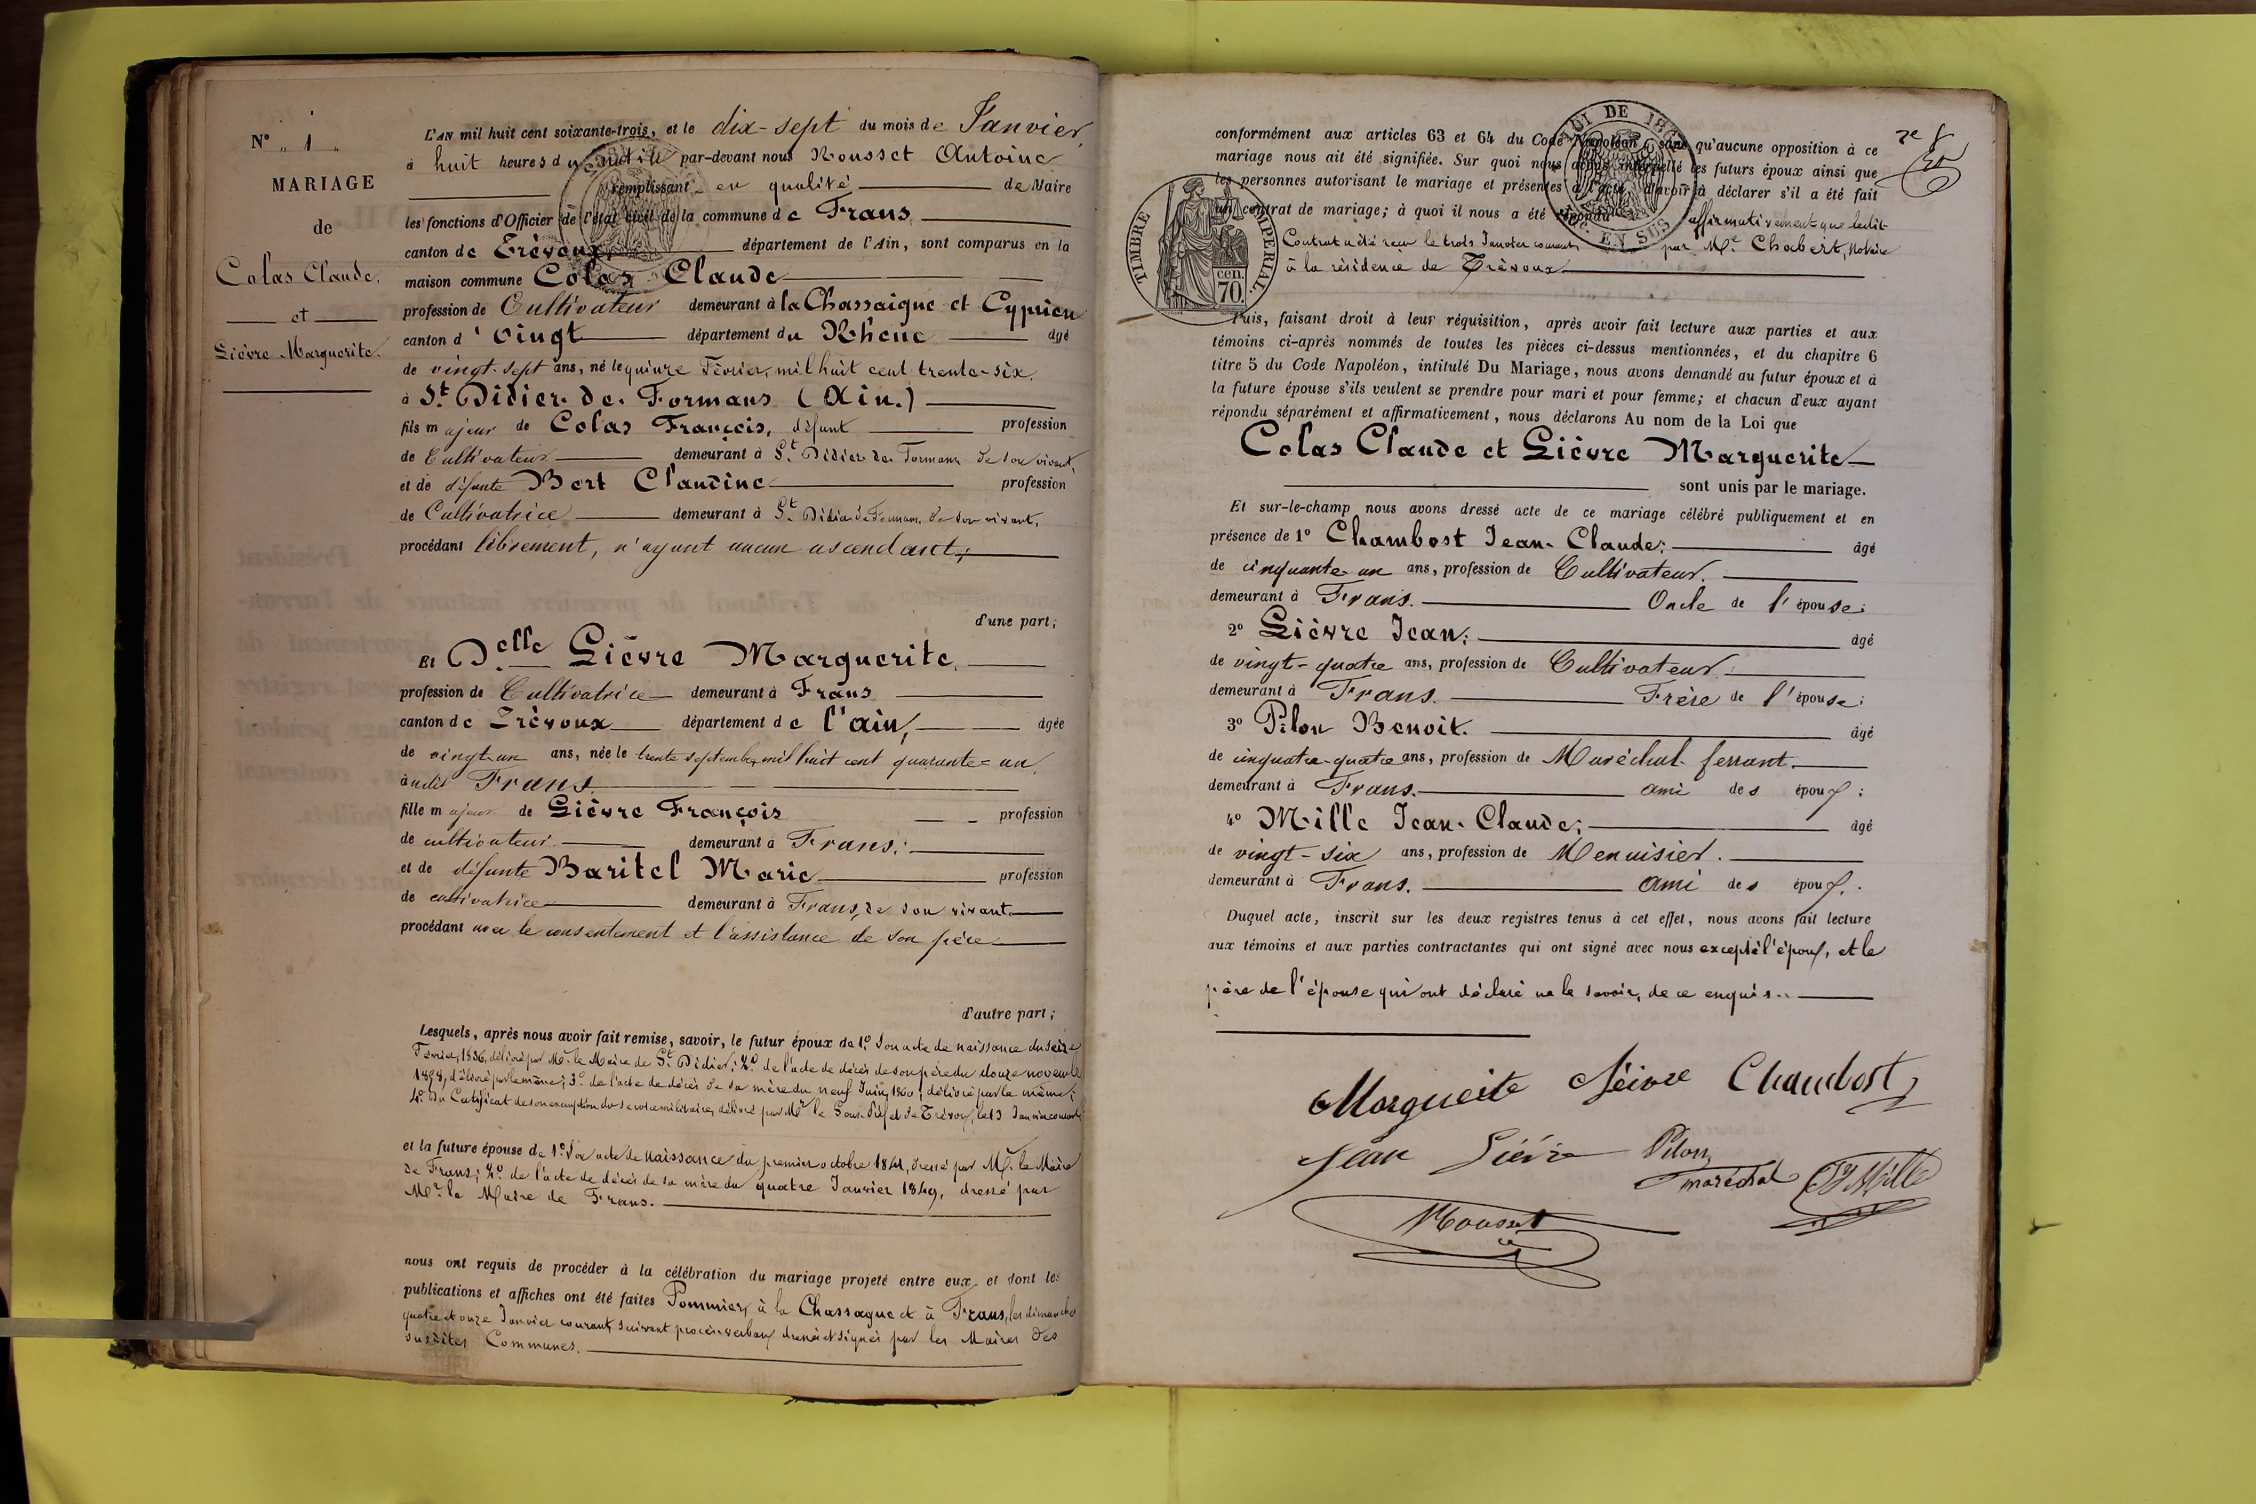 N° 1
MARIAGE
de
Colas Claude,
et
Lièvre Marguerite.
L'AN mil huit cent soixante-trois, et le dix-sept du mois de Janvier,
à huit heures du matin par-devant nous Rousset Antoine
remplissant en qualité de Maire
les fonctions d'Officier de l'état civil de la commune de Frans
canton de Trévoux département de l'Ain, sont comparus en la
maison commune Colas Claude
profession de Cultivateur demeurant à la Chassaigne et Cyprien
canton d' oingt département du Rhône âgé
de vingt-sept ans, né le quinze Février, mil huit cent trente-six.
à St. Didier de Formans (Ain.)
fils majeur de Colas François, défunt profession
de Cultivateur demeurant à St. Didier de Formans de son vivant,
et de défunte Bert Claudine profession
de Cultivatrice demeurant à St. Didier de Formans, de son vivant,
procédant librement, n'ayant aucun ascendant;
d'une part;
Et Delle Lièvre Marguerite,
profession de Cultivatrice demeurant à Frans
canton de Trévoux département de l'ain, âgée
de vingt-un ans, née le trente septembre mil huit cent quarante-un,
audit Frans
fille majeur de Lièvre François profession
de cultivateur demeurant à Frans;
et de défunte Baritel Marie profession
de cultivatrice demeurant à Frans, de son vivant
procédant avec le consentement et l'assistance de son père
d'autre part;
Lesquels, après nous avoir fait remise, savoir, le futur époux de 1° Son acte de naissance du seize
Février, 1836, délivré par Mr. le Maire de St. Didier; 2° de l'acte de décès de son père du douze novembre
1858, délivré par le même; 3° de l'acte de décès de sa mère du neuf Juin 1860, délivré par le même;
4° Du Certificat de son exemption du service militaire, délivré par Mr le Sous-Préfet de Trévoux, le 13 Janvier courant
et la future épouse de 1° Son acte de naissance du premier octobre 1841, dressé par Mr. le Maire
de Frans; 2° de l'acte de décès de sa mère du quatre Janvier 1849, dressé par
Mr. le Maire de Frans.
nous ont requis de procéder à la célébration du mariage projeté entre eux et dont les
publications et affiches ont été faites Pommiers, à la Chassagne et à Frans, les dimanches
quatre et onze Janvier courant, suivant procès-verbaux dressés et signés par les Maires des
susdites Communes.
conformément aux articles 63 et 64 du Code Napoléon, sans qu'aucune opposition à ce
mariage nous ait été signifiée. Sur quoi nous avons interpellé les futurs époux ainsi que
les personnes autorisant le mariage et présentes à l'acte, d'avoir à déclarer s'il a été fait
un contrat de mariage; à quoi il nous a été répondu affirmativement que ledit
Contrat a été reçu le trois Janvier courant, par Me. Chabert, Notaire
à la résidence de Trévoux
LOI DE 1862
EN SUS
TIMBRE IMPERIAL
70 cen.
Puis, faisant droit à leur réquisition, après avoir fait lecture aux parties et aux
témoins ci-après nommés de toutes les pièces ci-dessus mentionnées, et du chapitre 6
titre 5 du Code Napoléon, intitulé Du Mariage, nous avons demandé au futur époux et à
la future épouse s'ils veulent se prendre pour mari et pour femme; et chacun d'eux ayant
répondu séparément et affirmativement, nous déclarons Au nom de la Loi que
Colas Claude et Lièvre Marguerite
sont unis par le mariage.
Et sur-le-champ nous avons dressé acte de ce mariage célébré publiquement et en
présence de 1° Chambost Jean-Claude; âgé
de cinquante-un ans, profession de Cultivateur.
demeurant à Frans. Oncle de l'épouse;
2° Lièvre Jean; âgé
de vingt-quatre ans, profession de Cultivateur
demeurant à Frans. Frère de l'épouse;
3° Pilon Benoit. âgé
de cinquante-quatre ans, profession de Maréchal ferrant.
demeurant à Frans. ami des époux;
4° Mille Jean-Claude; âgé
de vingt-six ans, profession de Menuisier.
demeurant à Frans. ami des époux.
Duquel acte, inscrit sur les deux registres tenus à cet effet, nous avons fait lecture
aux témoins et aux parties contractantes qui ont signé avec nous excepté l'époux, et le
père de l'épouse qui ont déclaré ne le savoir, de ce enquis.
Marguerite Leivre Chambost
Jean Lièvre Pilon
maréchal Mille
Rousset